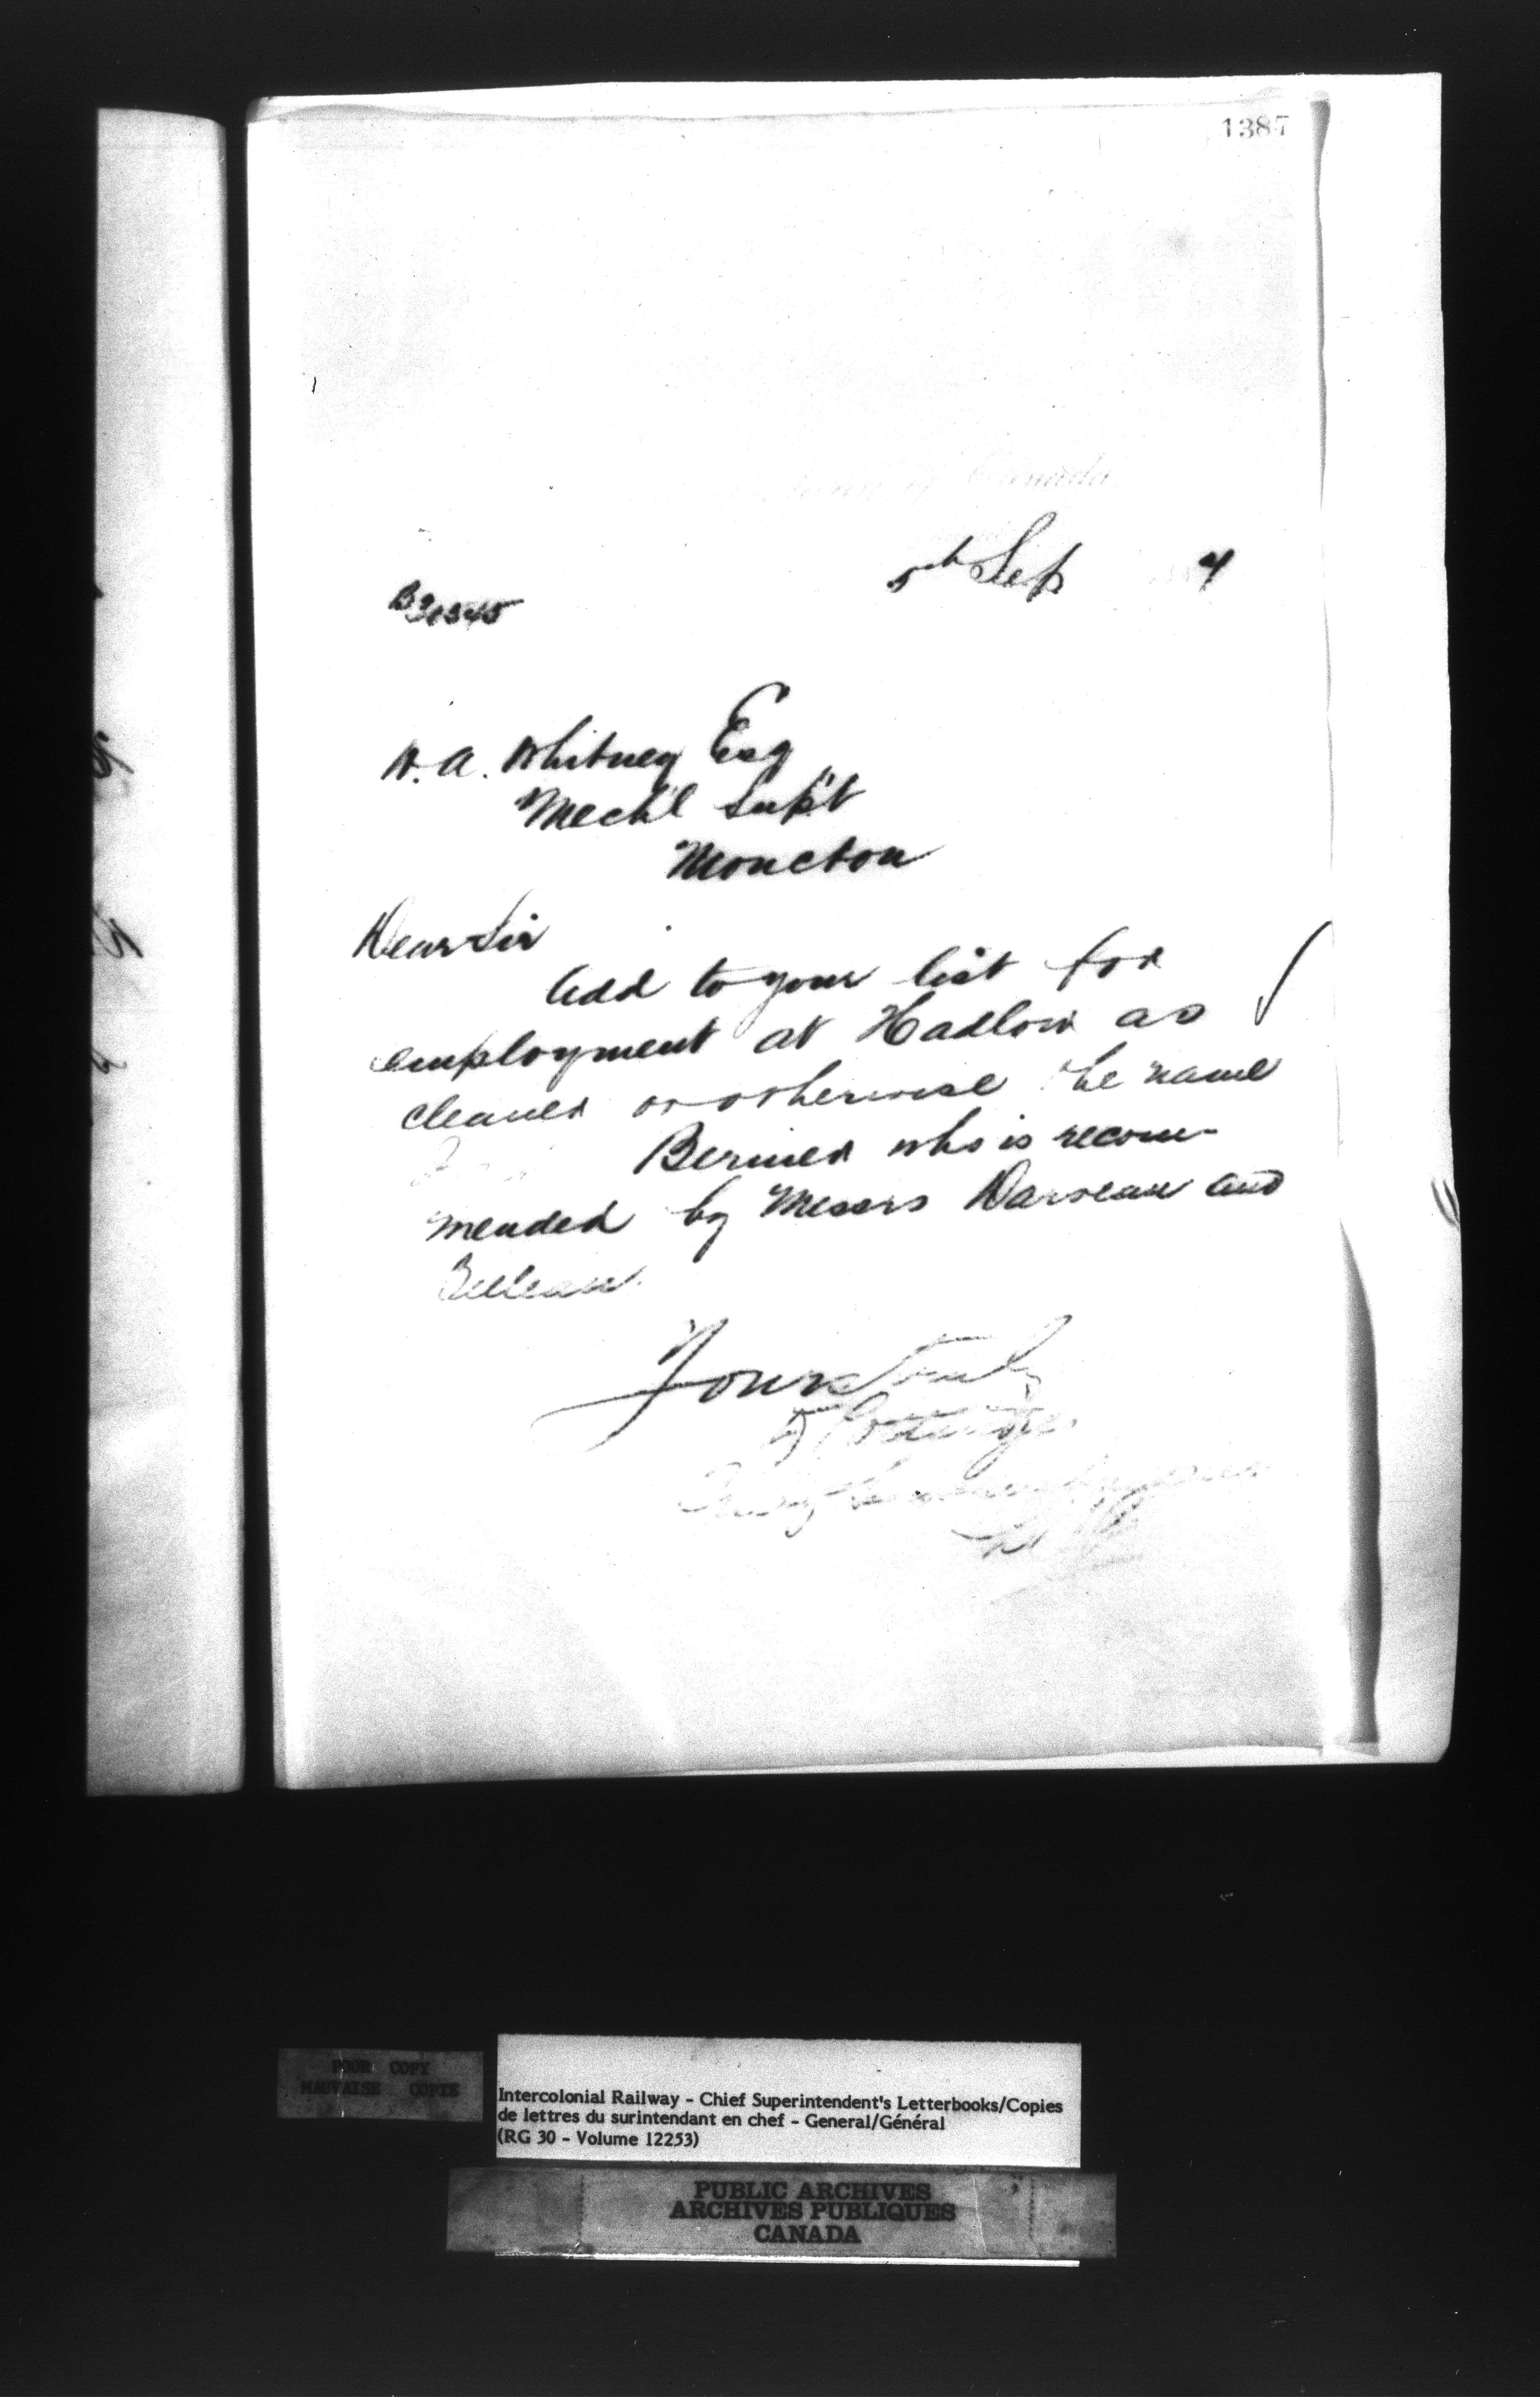 1387
of Canada
5th Sep 4
B20345
W. A. Whitney Esq
Mech'l Sup't
Moncton
Dear Sir
Add to your list for
employment at Hadlow as
cleaner or otherwise the name
Bernier who is recom-
mended by Messrs Daroeau and
Belleau.
Yours truly
D Pottinger
Chief Superintendent
POOR COPY
MAUVAISE COPIE
Intercolonial Railway - Chief Superintendent's Letterbooks/Copies
de lettres du surintendant en chef - General/Général
(RG 30 - Volume 12253)
PUBLIC ARCHIVES
ARCHIVES PUBLIQUES
CANADA